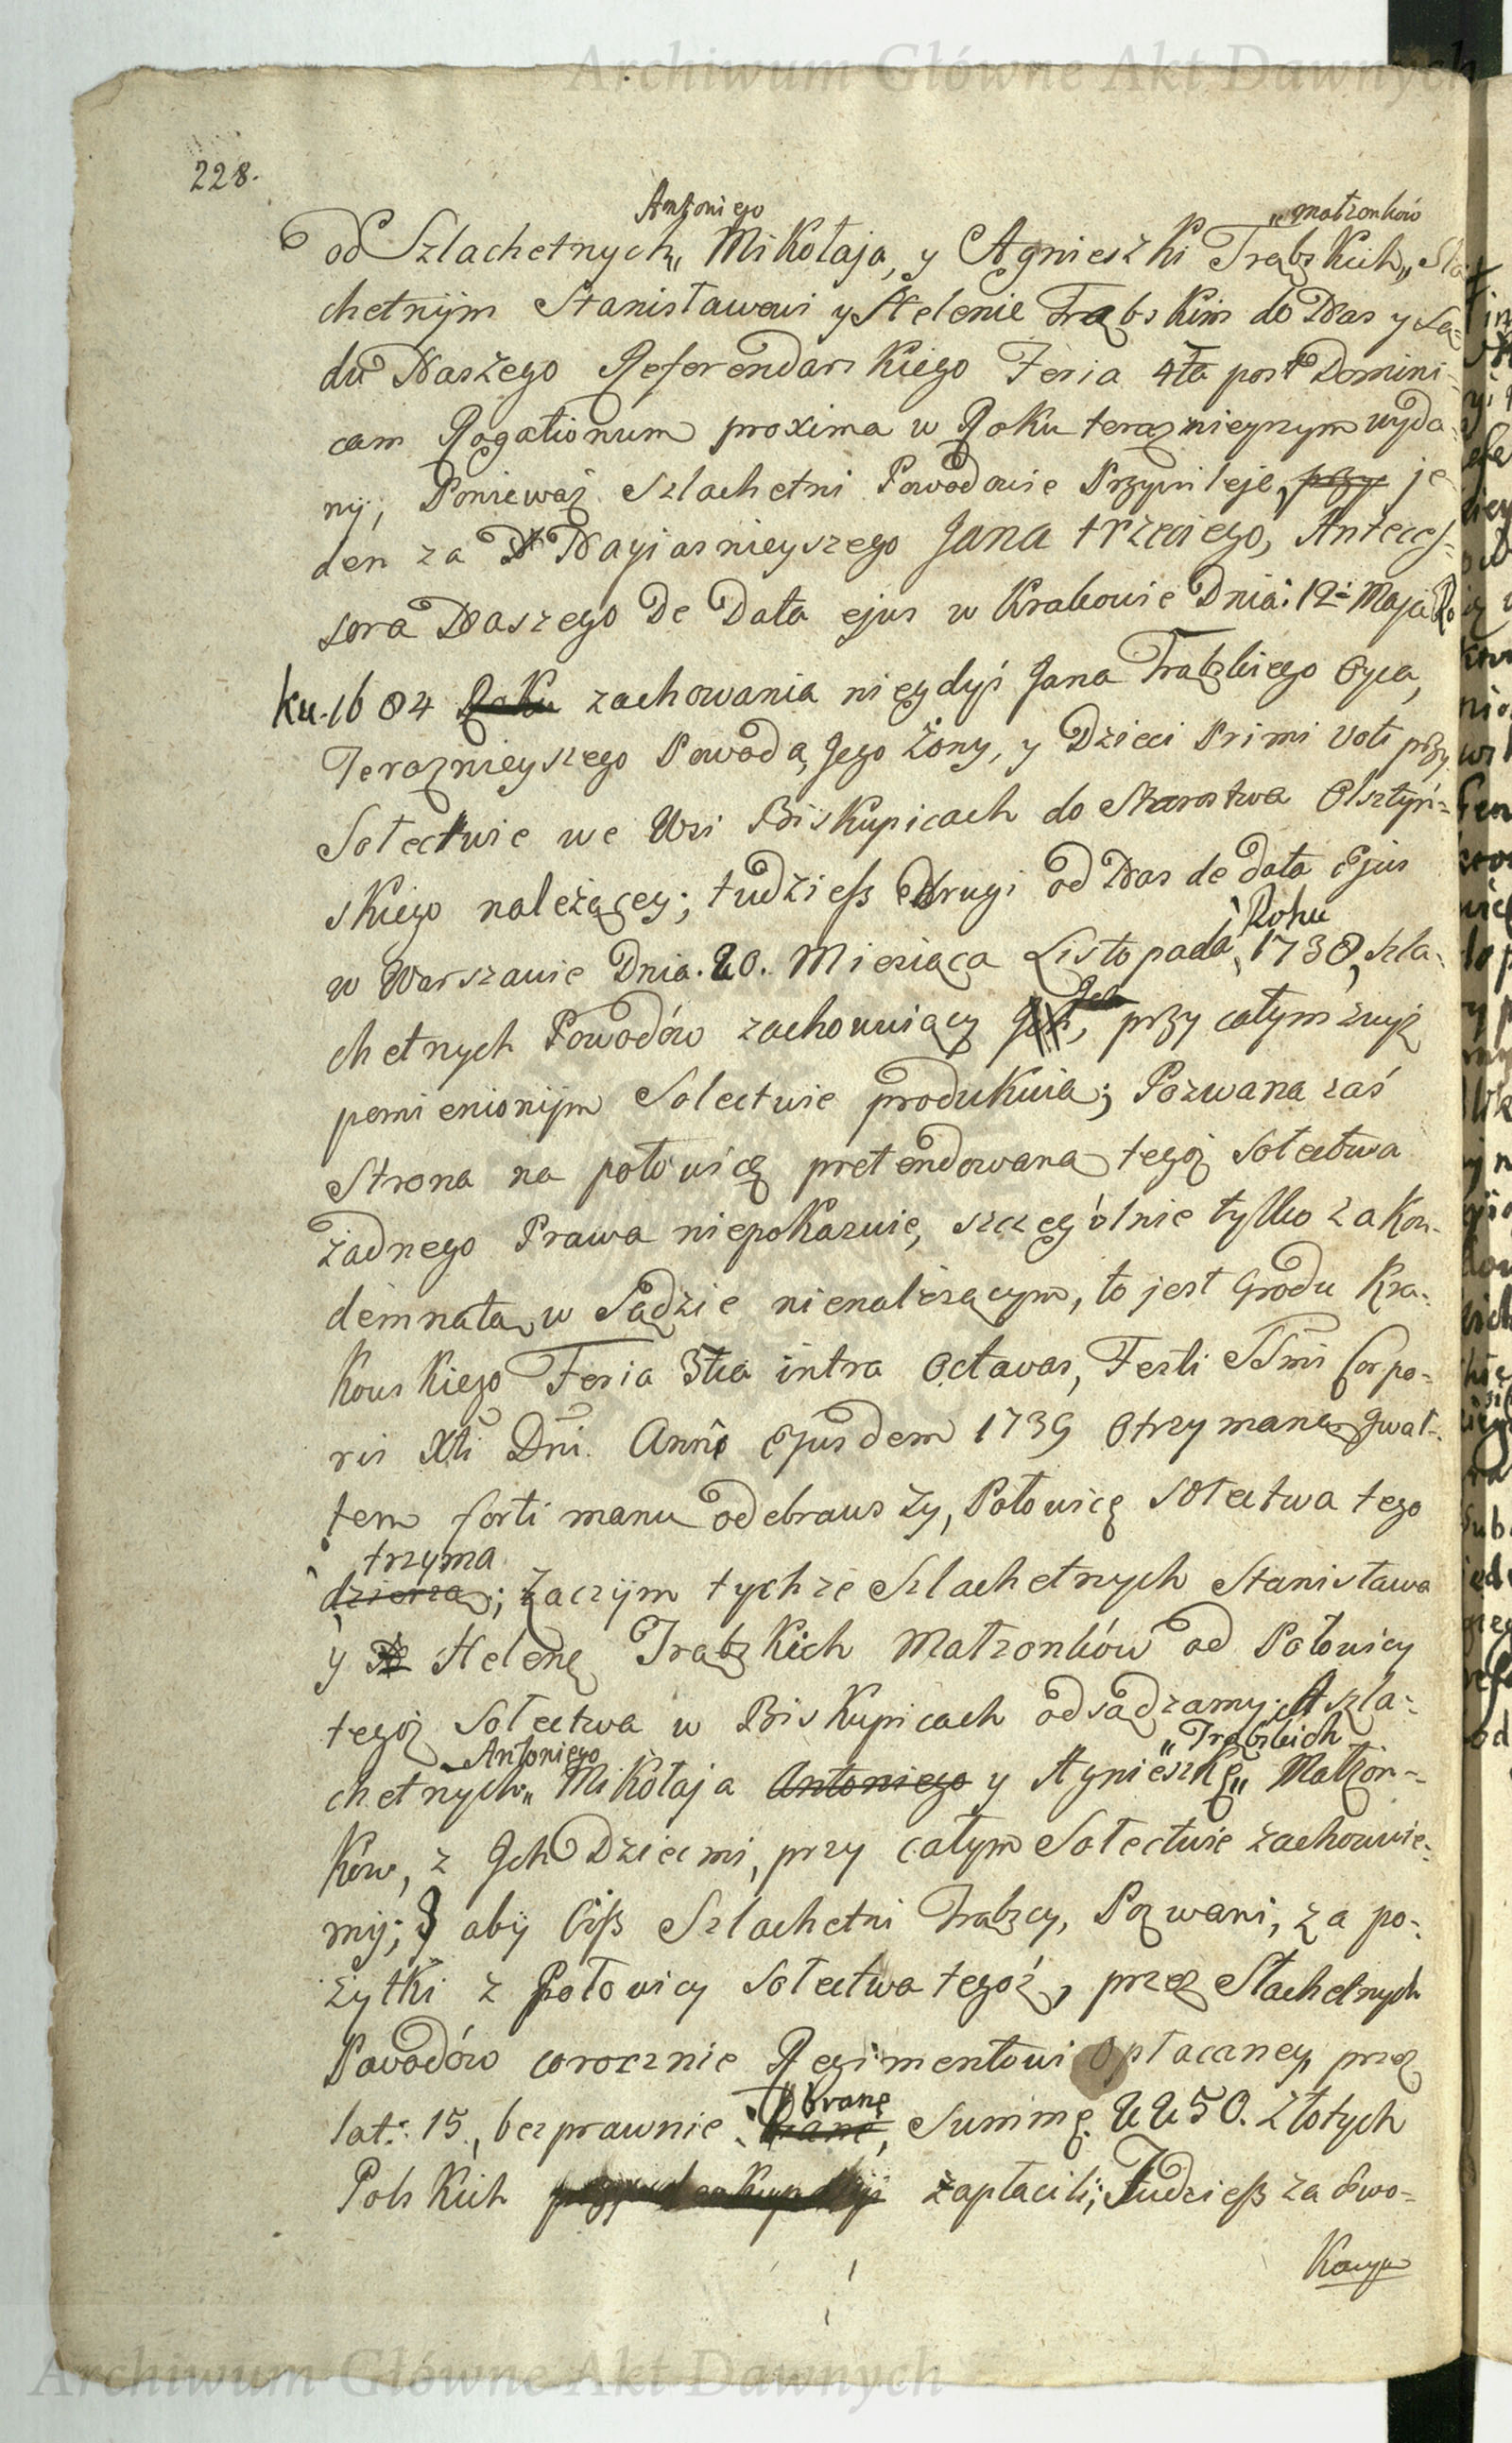 Archiwum Główne Akt Dawnych
228.
Antoniego „małzonków
od Szlachetnych„ Mikołaja, y Agnieszki Trąbskich„ Sla
chetnÿm Stanisławowi y Helenie Trąbskim do Nas y Są-
du Naszego Referendarskiego Feria 4ta post Domini-
cam Rogationum proxima w Roku teraznieyszym wyda-
nÿ, Ponieważ Szlachetni Powodowie Przywileje, przy je
den za N Nayiasnieyszego Jana trzeciego, Anteces-
sora Naszego De Data ejus w Krakowie Dnia: 12: Maja Ro
ku. 1684 Roku zachowania niegdyś Jana Trąbskiego Oyca,
Teraznieyszego Powoda, Jego Żony, y Dzieci Primi Voti przy
Sołectwie we Wsi Biskupicach do Starostwa Olsztyń-
skiego należącey; tudzieß drugi od Nas de data Ejus
Roku
w Warszawie Dnia. 20. Miesiąca Listopada, 1730, szla-
chetnych Powodów zachowuiący Ich, przy całym zwyż
pomienionÿm Solectwie produkuia; Pozwana zaś
Strona na połowicę pretendowana tegoż Sołectwa
żadnego Prawa niepokazuie, szczegόlnie tylko za Kon-
demnatą w Sądzie nienależącym, to jest Grodu Kra-
kowskiego Feria 3tia intra Octavas, Festi SSmi Corpo-
ris Xti Dni Anno Ejusdem 1739 otrzymaną gwał-
tem forti manu odebrawszy, Połowicę Sołectwa tego
trzyma
dzierza; Zaczÿm tychże Szlachetnych Stanisława
y Helenę Trąbskich Małzonków od Połowicy
tegoż Sołectwa w Biskupicach odsądzamy; A szla-
Antoniego „Trąbskich
chetnych„ Mikołaja Antoniego y Agnieszkę„ Małżon-
ków, z Ich Dziećmi, przy całym Sołectwie zachowuie-
mÿ; y abÿ Ciß Szlachetni Trąbscy, Pozwani, za po-
żytki z Połowicy Sołectwa tegoż, przez Slachetnych
Powodów corocznie Regimentowi opłacaney, przez
brane
lat: 15, bezprawnie brane, Summę 2250. Złotych
Polskich zapłacili; Tudzieß za Szwo-
Archiwum Główne Akt Dawnych